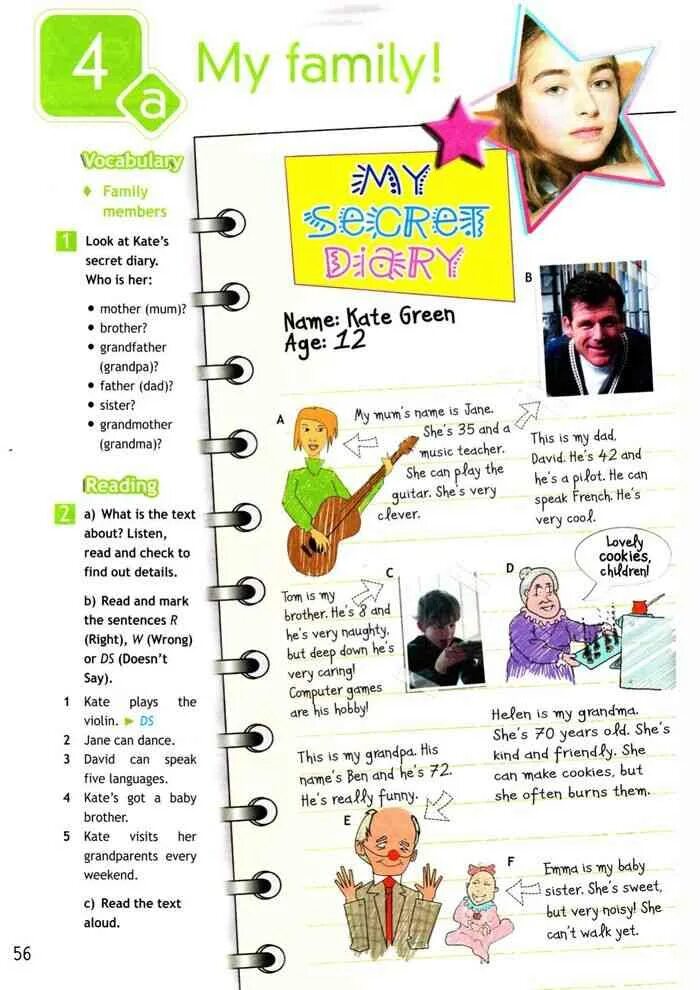 4
a
My family!
Vocabulary
♦ Family
members
1 Look at Kate's
secret diary.
Who is her:
• mother (mum)?
• brother?
• grandfather
(grandpa)?
• father (dad)?
• sister?
• grandmother
(grandma)?
Reading
2 a) What is the text
about? Listen,
read and check to
find out details.
b) Read and mark
the sentences R
(Right), W (Wrong)
or DS (Doesn't
Say).
1 Kate plays the
violin. ► DS
2 Jane can dance.
3 David can speak
five languages.
4 Kate's got a baby
brother.
5 Kate visits her
grandparents every
weekend.
c) Read the text
aloud.
56
MY
SECRET
DIARY
Name: Kate Green
Age: 12
B
A
My mum's name is Jane.
She's 35 and a
music teacher.
She can play the
guitar. She's very
clever.
This is my dad,
David. He's 42 and
he's a pilot. He can
speak French. He's
very cool.
C
Tom is my
brother. He's 8 and
he's very naughty,
but deep down he's
very caring!
Computer games
are his hobby!
D
Lovely
cookies,
children!
Helen is my grandma.
She's 70 years old. She's
kind and friendly. She
can make cookies, but
she often burns them.
This is my grandpa. His
name's Ben and he's 72.
He's really funny.
E
F
Emma is my baby
sister. She's sweet,
but very noisy! She
can't walk yet.